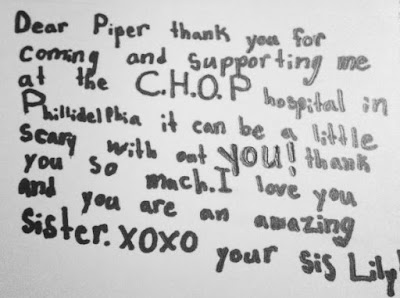 Dear Piper thank you for
coming and supporting me
at the C.H.O.P hospital in
Phillidelphia it can be a little
scary with out YOU! thank
you so much. I love you
and you are an amazing
sister. XOXO your sis Lily!